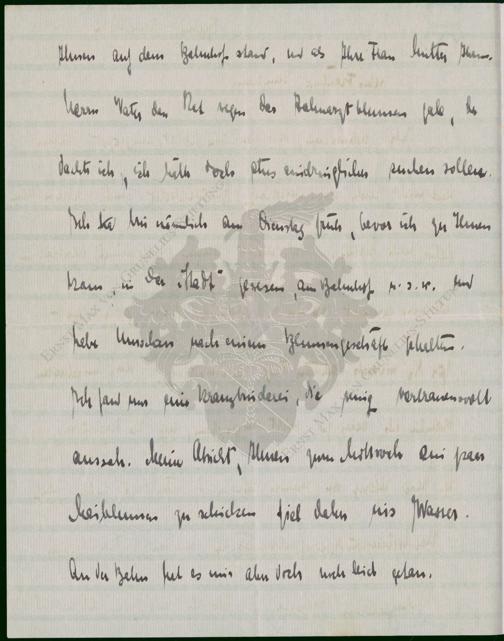 Ihnen auf dem Bahnhof stand, und als Ihre Frau Mutter Ihrem
Herrn Vater den Rat wegen der Zahnarztblumen gab, da
dachte ich, ich hätte doch etwas eindringlicher suchen sollen.
Ich bin nämlich am Dienstag früh, bevor ich zu Ihnen
kam, in der „Stadt" gewesen, am Bahnhof u.s.w. und
habe Umschau nach einem Blumengeschäft gehalten.
Ich fand nur eine Kranzbinderei, die wenig vertrauensvoll
aussah. Meine Absicht, Ihnen zum Mittwoch ein paar
Maiblumen zu schicken fiel daher ins Wasser.
An der Bahn hat es mir aber doch noch leid getan.
Ernst Max von Grunelius-Stiftung
Ernst Max von Grunelius-Stiftung